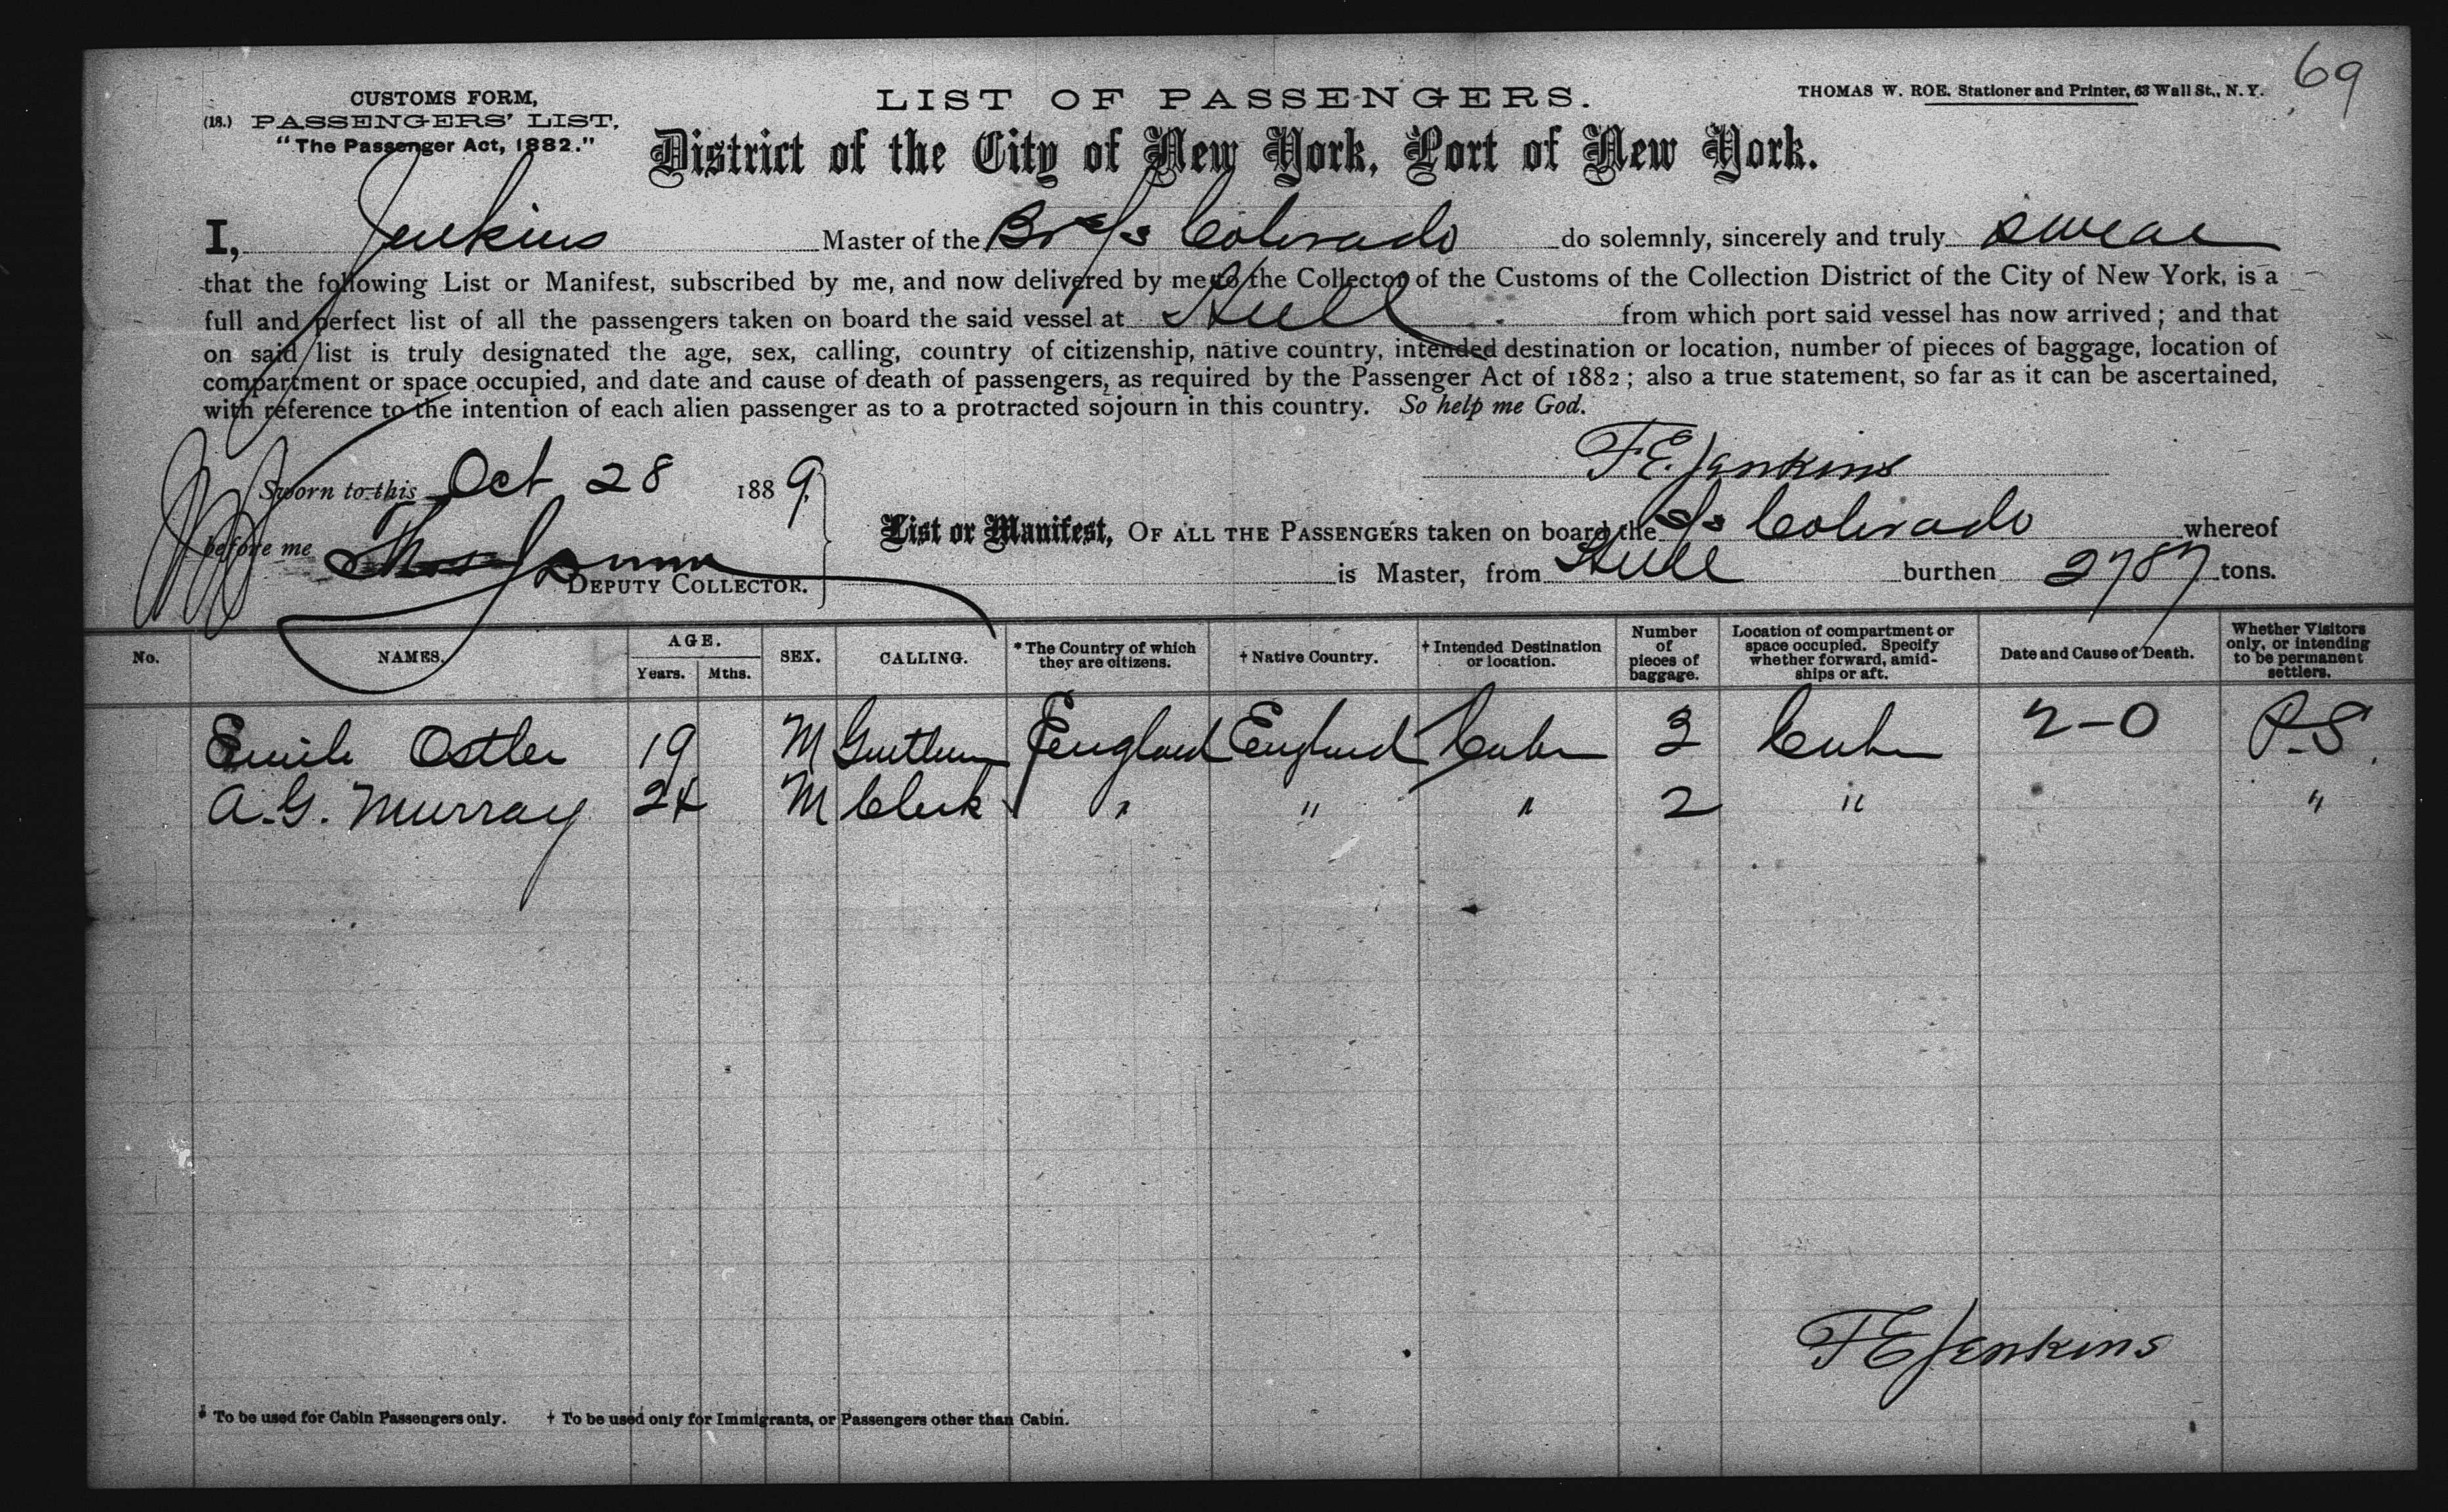 69
CUSTOMS FORM,
(18.) PASSENGERS' LIST,
"The Passenger Act, 1882."
LIST OF PASSENGERS.
THOMAS W. ROE. Stationer and Printer, 63 Wall St., N. Y.
District of the City of New York, Port of New York.
I, Jenkins Master of the Br S/s Colorado do solemnly, sincerely and truly swear
that the following List or Manifest, subscribed by me, and now delivered by me to the Collector of the Customs of the Collection District of the City of New York, is a
full and perfect list of all the passengers taken on board the said vessel at Hull from which port said vessel has now arrived; and that
on said list is truly designated the age, sex, calling, country of citizenship, native country, intended destination or location, number of pieces of baggage, location of
compartment or space occupied, and date and cause of death of passengers, as required by the Passenger Act of 1882; also a true statement, so far as it can be ascertained,
with reference to the intention of each alien passenger as to a protracted sojourn in this country. So help me God.
F E. Jenkins
Sworn to this Oct 28 1889.
before me Thos
DEPUTY COLLECTOR.
List or Manifest, OF ALL THE PASSENGERS taken on board the S/s Colorado whereof
is Master, from Hull burthen 2787 tons.
No. NAMES. AGE. Years. Mths. SEX. CALLING. * The Country of which they are citizens. † Native Country. † Intended Destination or location. Number of pieces of baggage. Location of compartment or space occupied. Specify whether forward, amidships or aft. Date and Cause of Death. Whether Visitors only, or intending to be permanent settlers.
Emile Ostler 19 M England England 3 2-0 P.S.
A. G. Murray 24 M Clerk " " " 2 " "
F E Jenkins
* To be used for Cabin Passengers only. † To be used only for Immigrants, or Passengers other than Cabin.